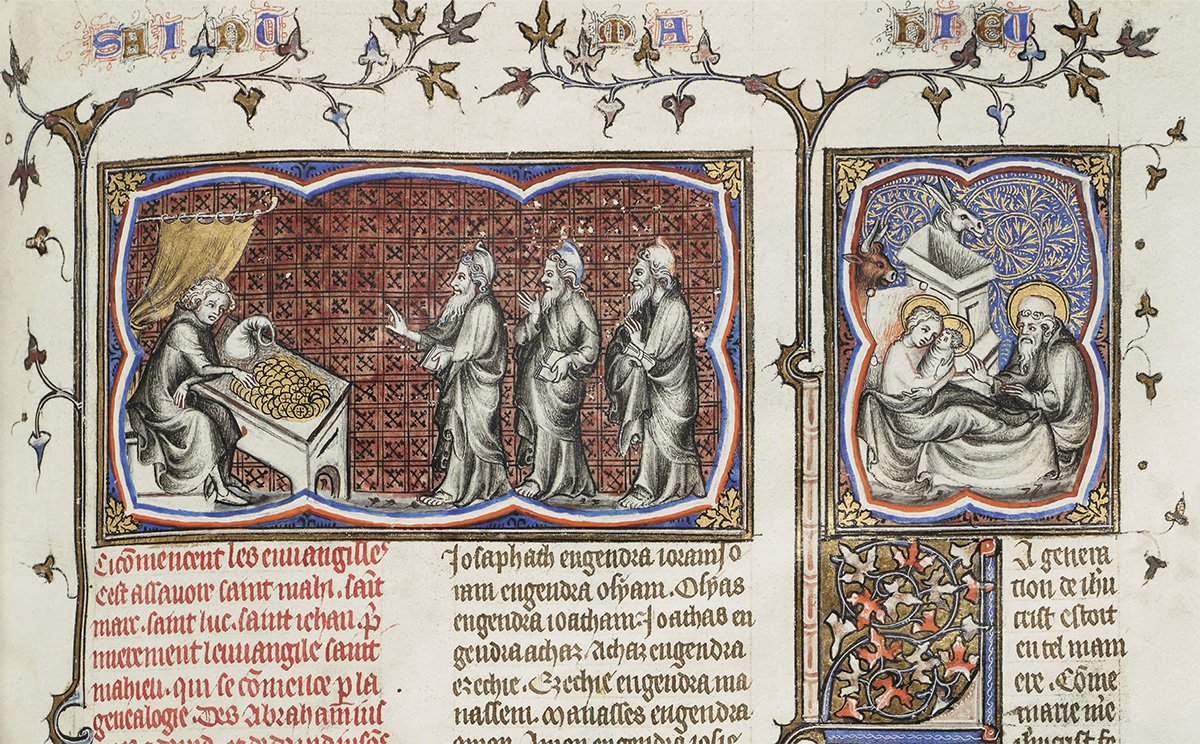 SAINT MA HIEU
Ci cōmencent les euuangilles
Cest assauoir saint mahi . sait̄
marc . saint luc . saint iehan . p̄
mierement leuuangile saint
mahieu . qui se cōmence p la
genealogie . Des Abraham ius
Josaphath engendra ioram Jo
ram engendra osyam . Osyas
engendra ioatham : Joathas en
gendra achaz . Achaz engendra
ezechie . Ezechie engendra ma
nassem . Manasses engendra
amon . Amon engendra iosie
A genera
tion de ih̄u
crist estoit
en tel mani
ere . Cōme
marie me